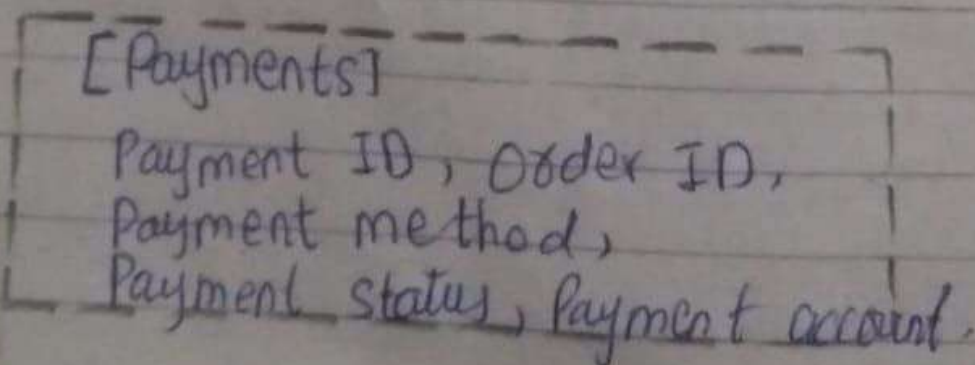 [Payments]
Payment ID, Order ID,
Payment method,
Payment status, Payment account.